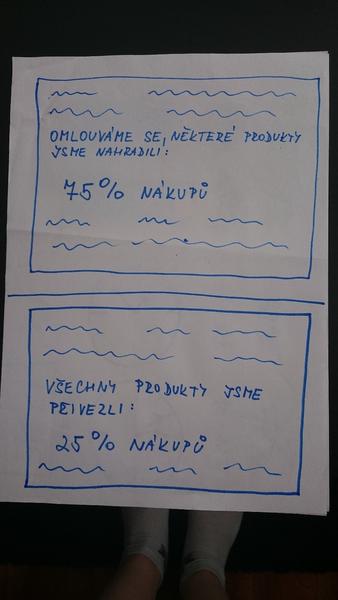 OMLOUVÁME SE, NĚKTERÉ PRODUKTY
JSME NAHRADILI:
75% NÁKUPŮ
VŠECHNY PRODUKTY JSME
PŘIVEZLI:
25% NÁKUPŮ